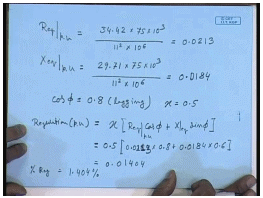 Req|pu = 34.42 × 75 × 10³ / 11² × 10⁶ = 0.0213
Xeq|pu = 29.71 × 75 × 10³ / 11² × 10⁶ = 0.0184
cos ϕ = 0.8 (lagging) x = 0.5
Regulation (pu) = x [Req|pu cos ϕ + Xeq|pu sin ϕ]
= 0.5 [0.0213 × 0.8 + 0.0184 × 0.6]
= 0.01404
% Reg = 1.404%